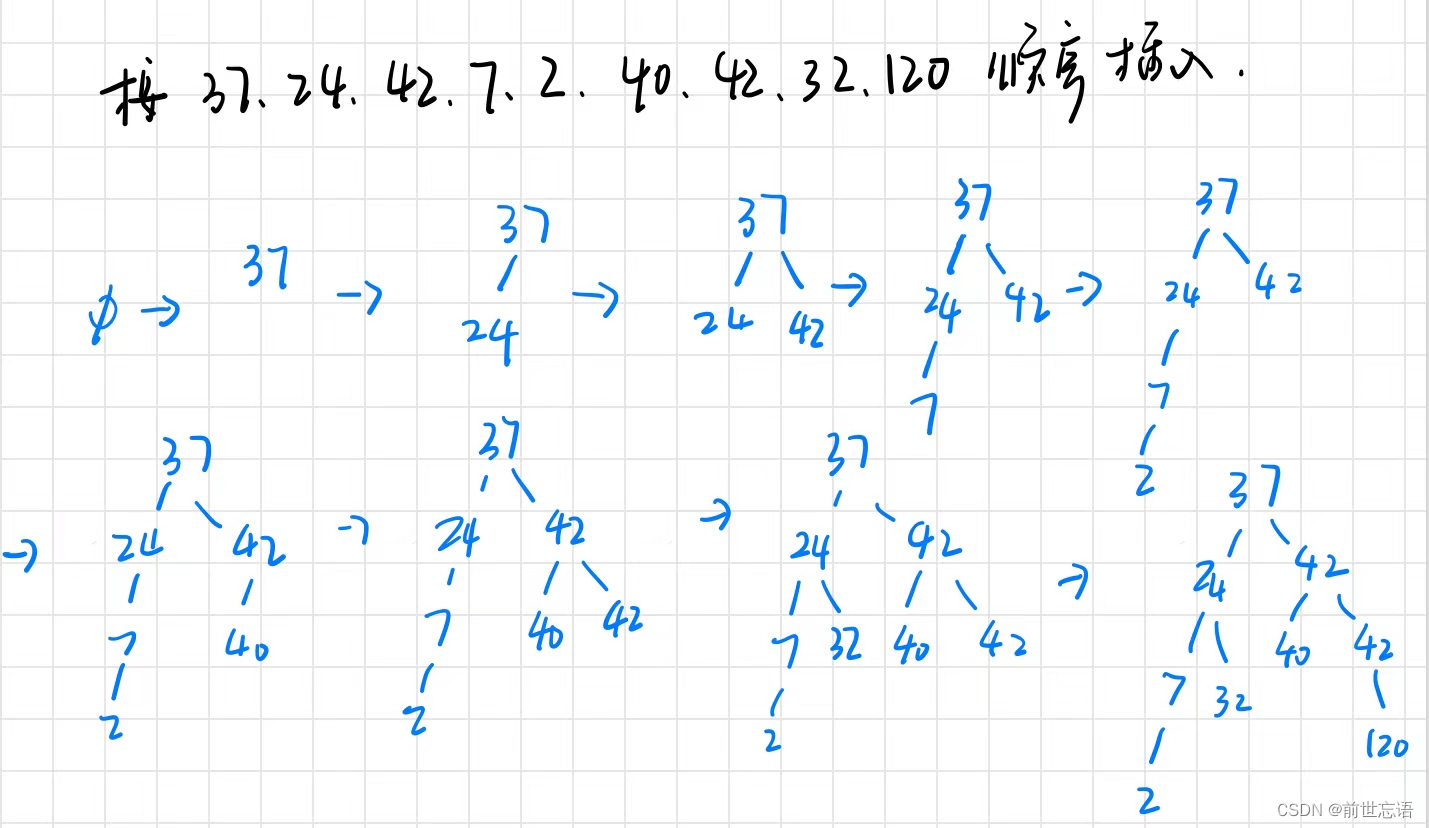 按 37、24、42、7、2、40、42、32、120 顺序插入.
37
37
37
37
37
24
24 42
24 42
24 42
φ → → → → →
7
7
2
37
37
37
37
24 42
24 42
24 42
24 42
→ → → →
7 40
7 40 42
7 32 40 42
7 32 40 42
2
2
2
2 120
CSDN @前世忘语